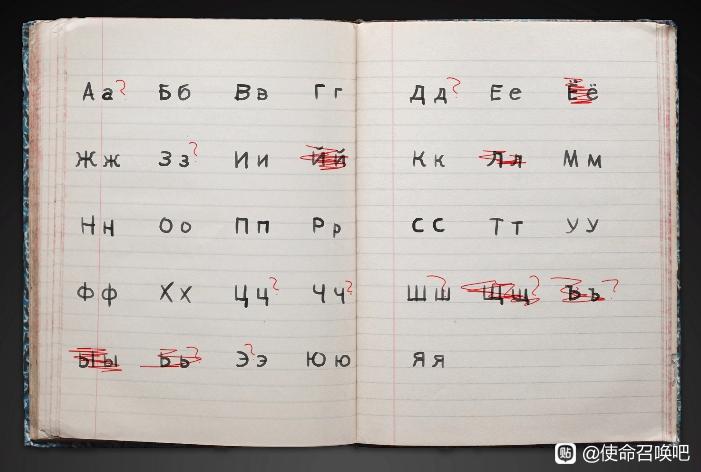 Аа? Бб Вв Гг Дд? Ее Ёё
Жж Зз? Ии Йй Кк Лл Мм
Нн Оо Пп Рр Сс Тт Уу
Фф Хх Цц? Чч? Шш? Щщ? Ъъ?
Ыы Ьь? Ээ? Юю Яя
贴 @使命召唤吧